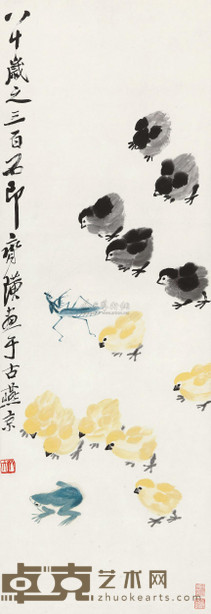 八十歲之三百石印齊璜画于古燕京
卓克艺术网
www.zhuokearts.com